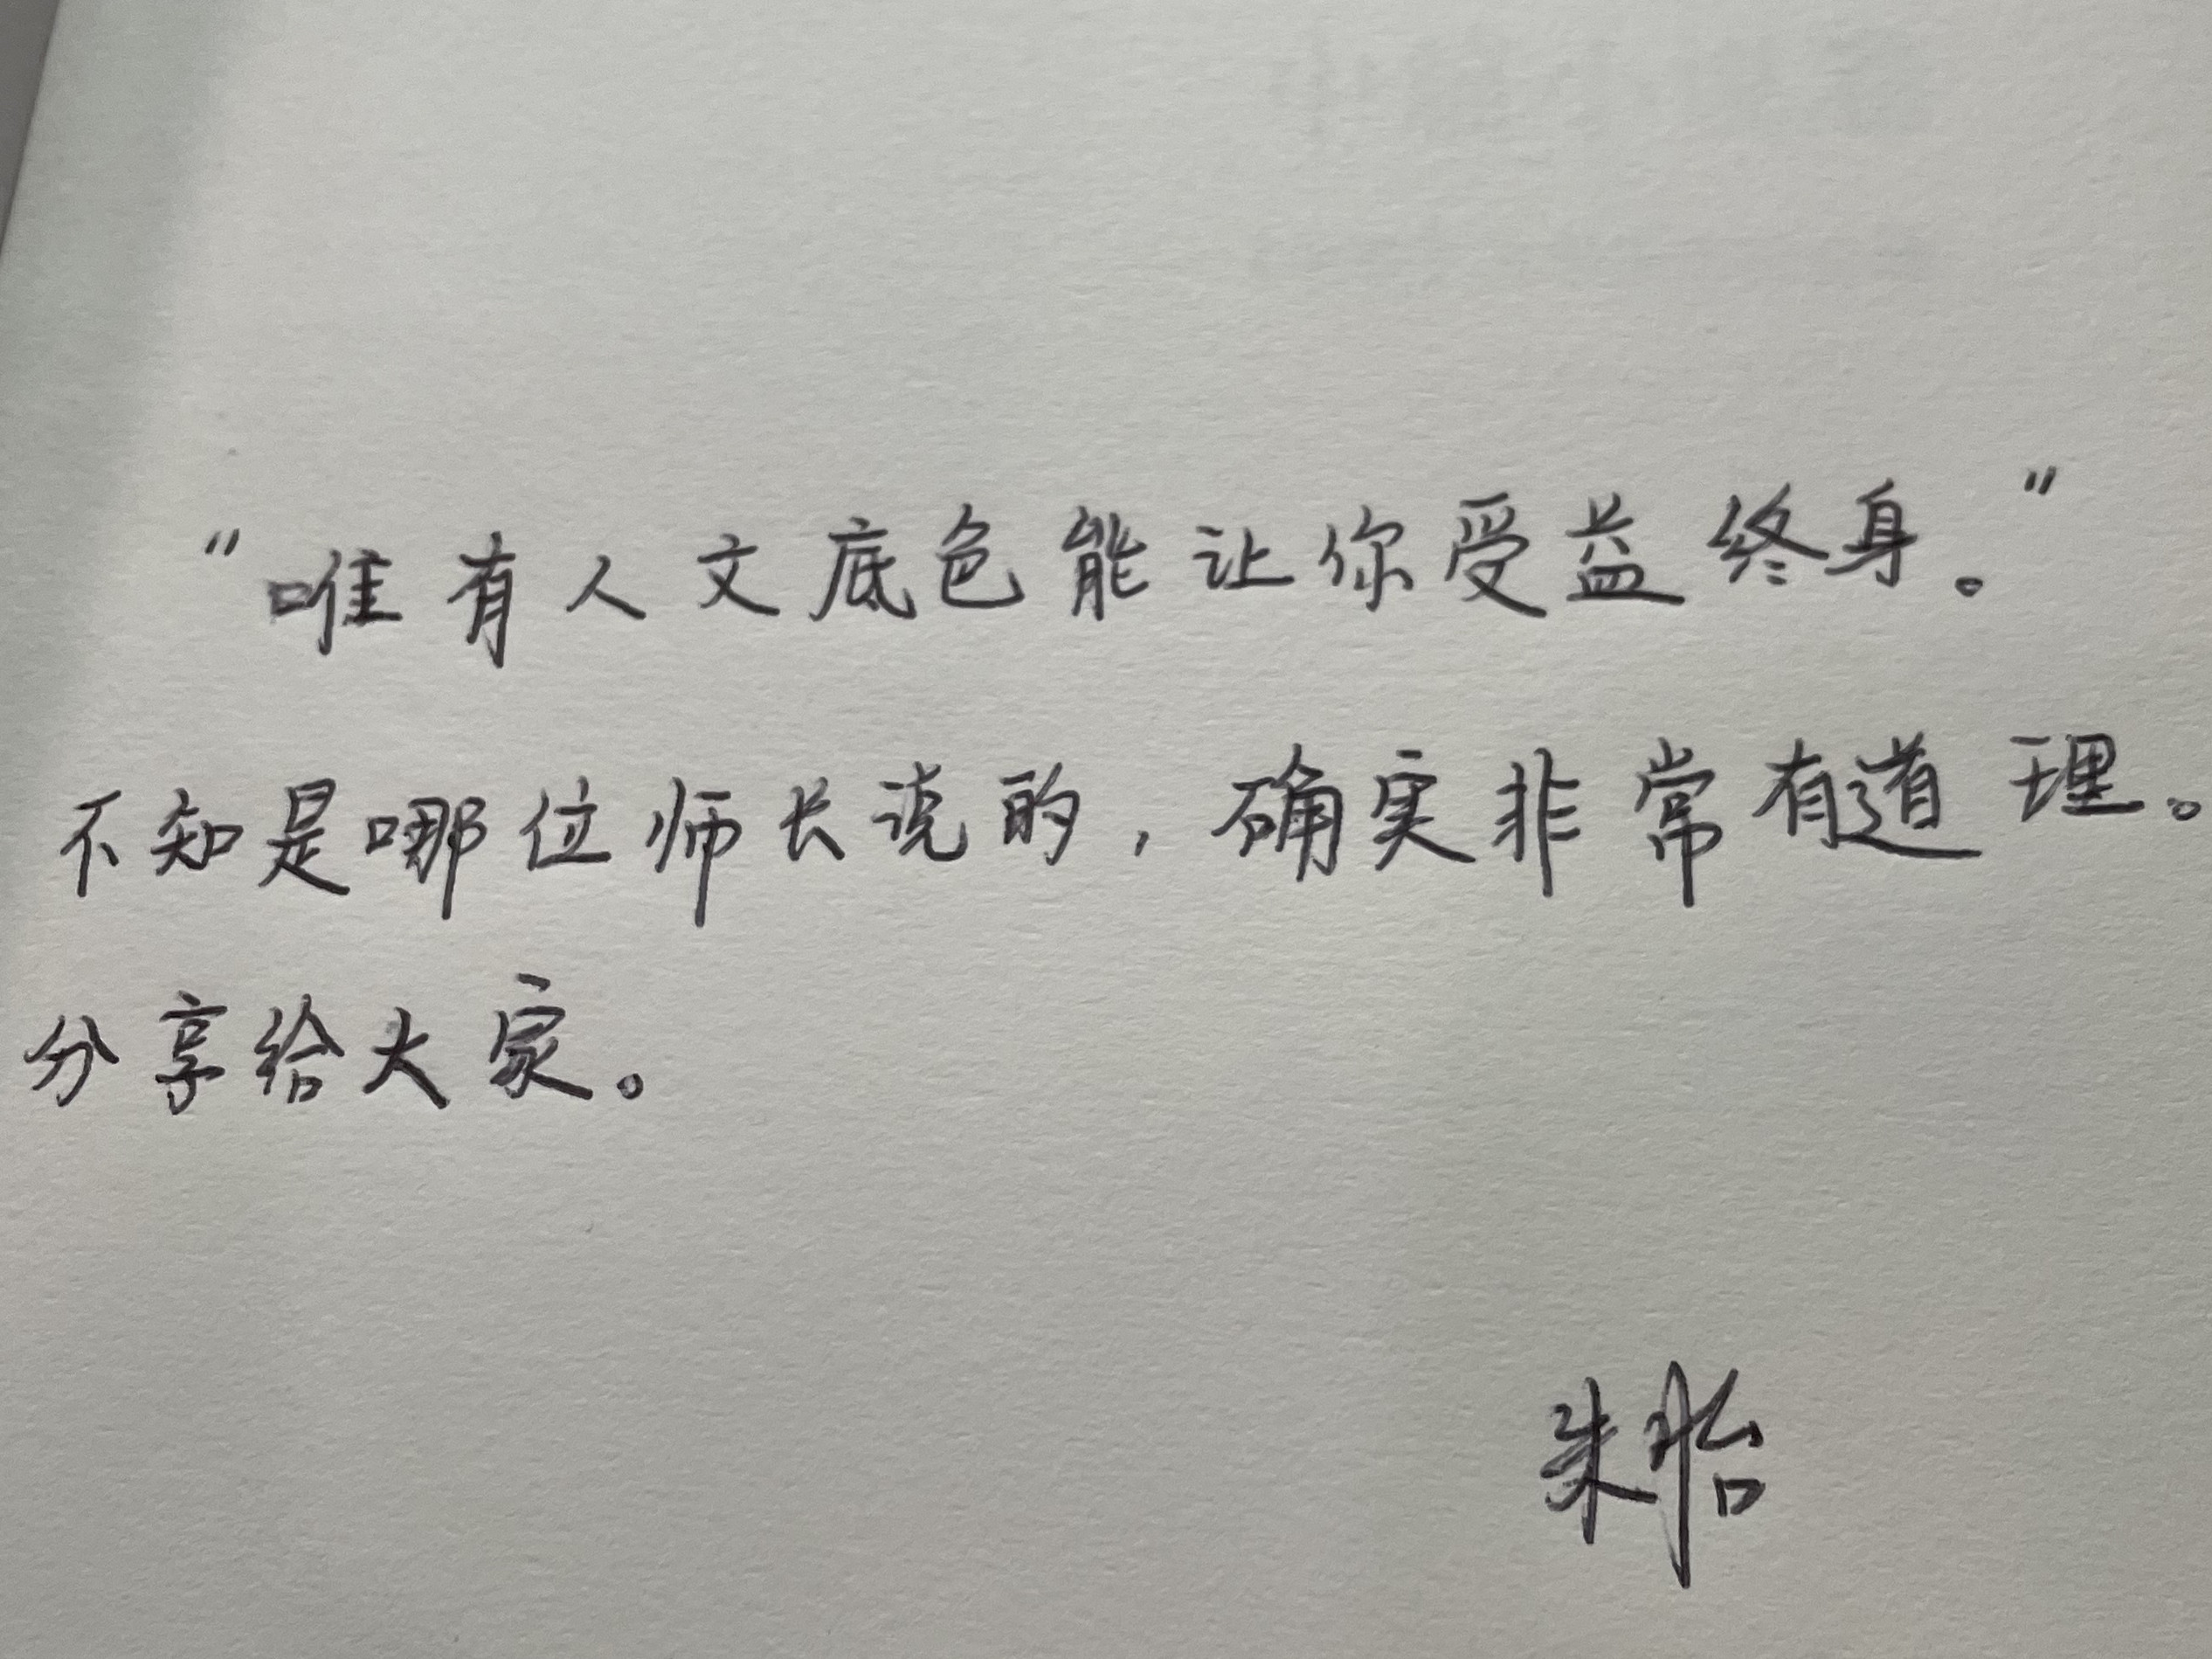 “唯有人文底色能让你受益终身。”
不知是哪位师长说的，确实非常有道理。
分享给大家。
朱怡